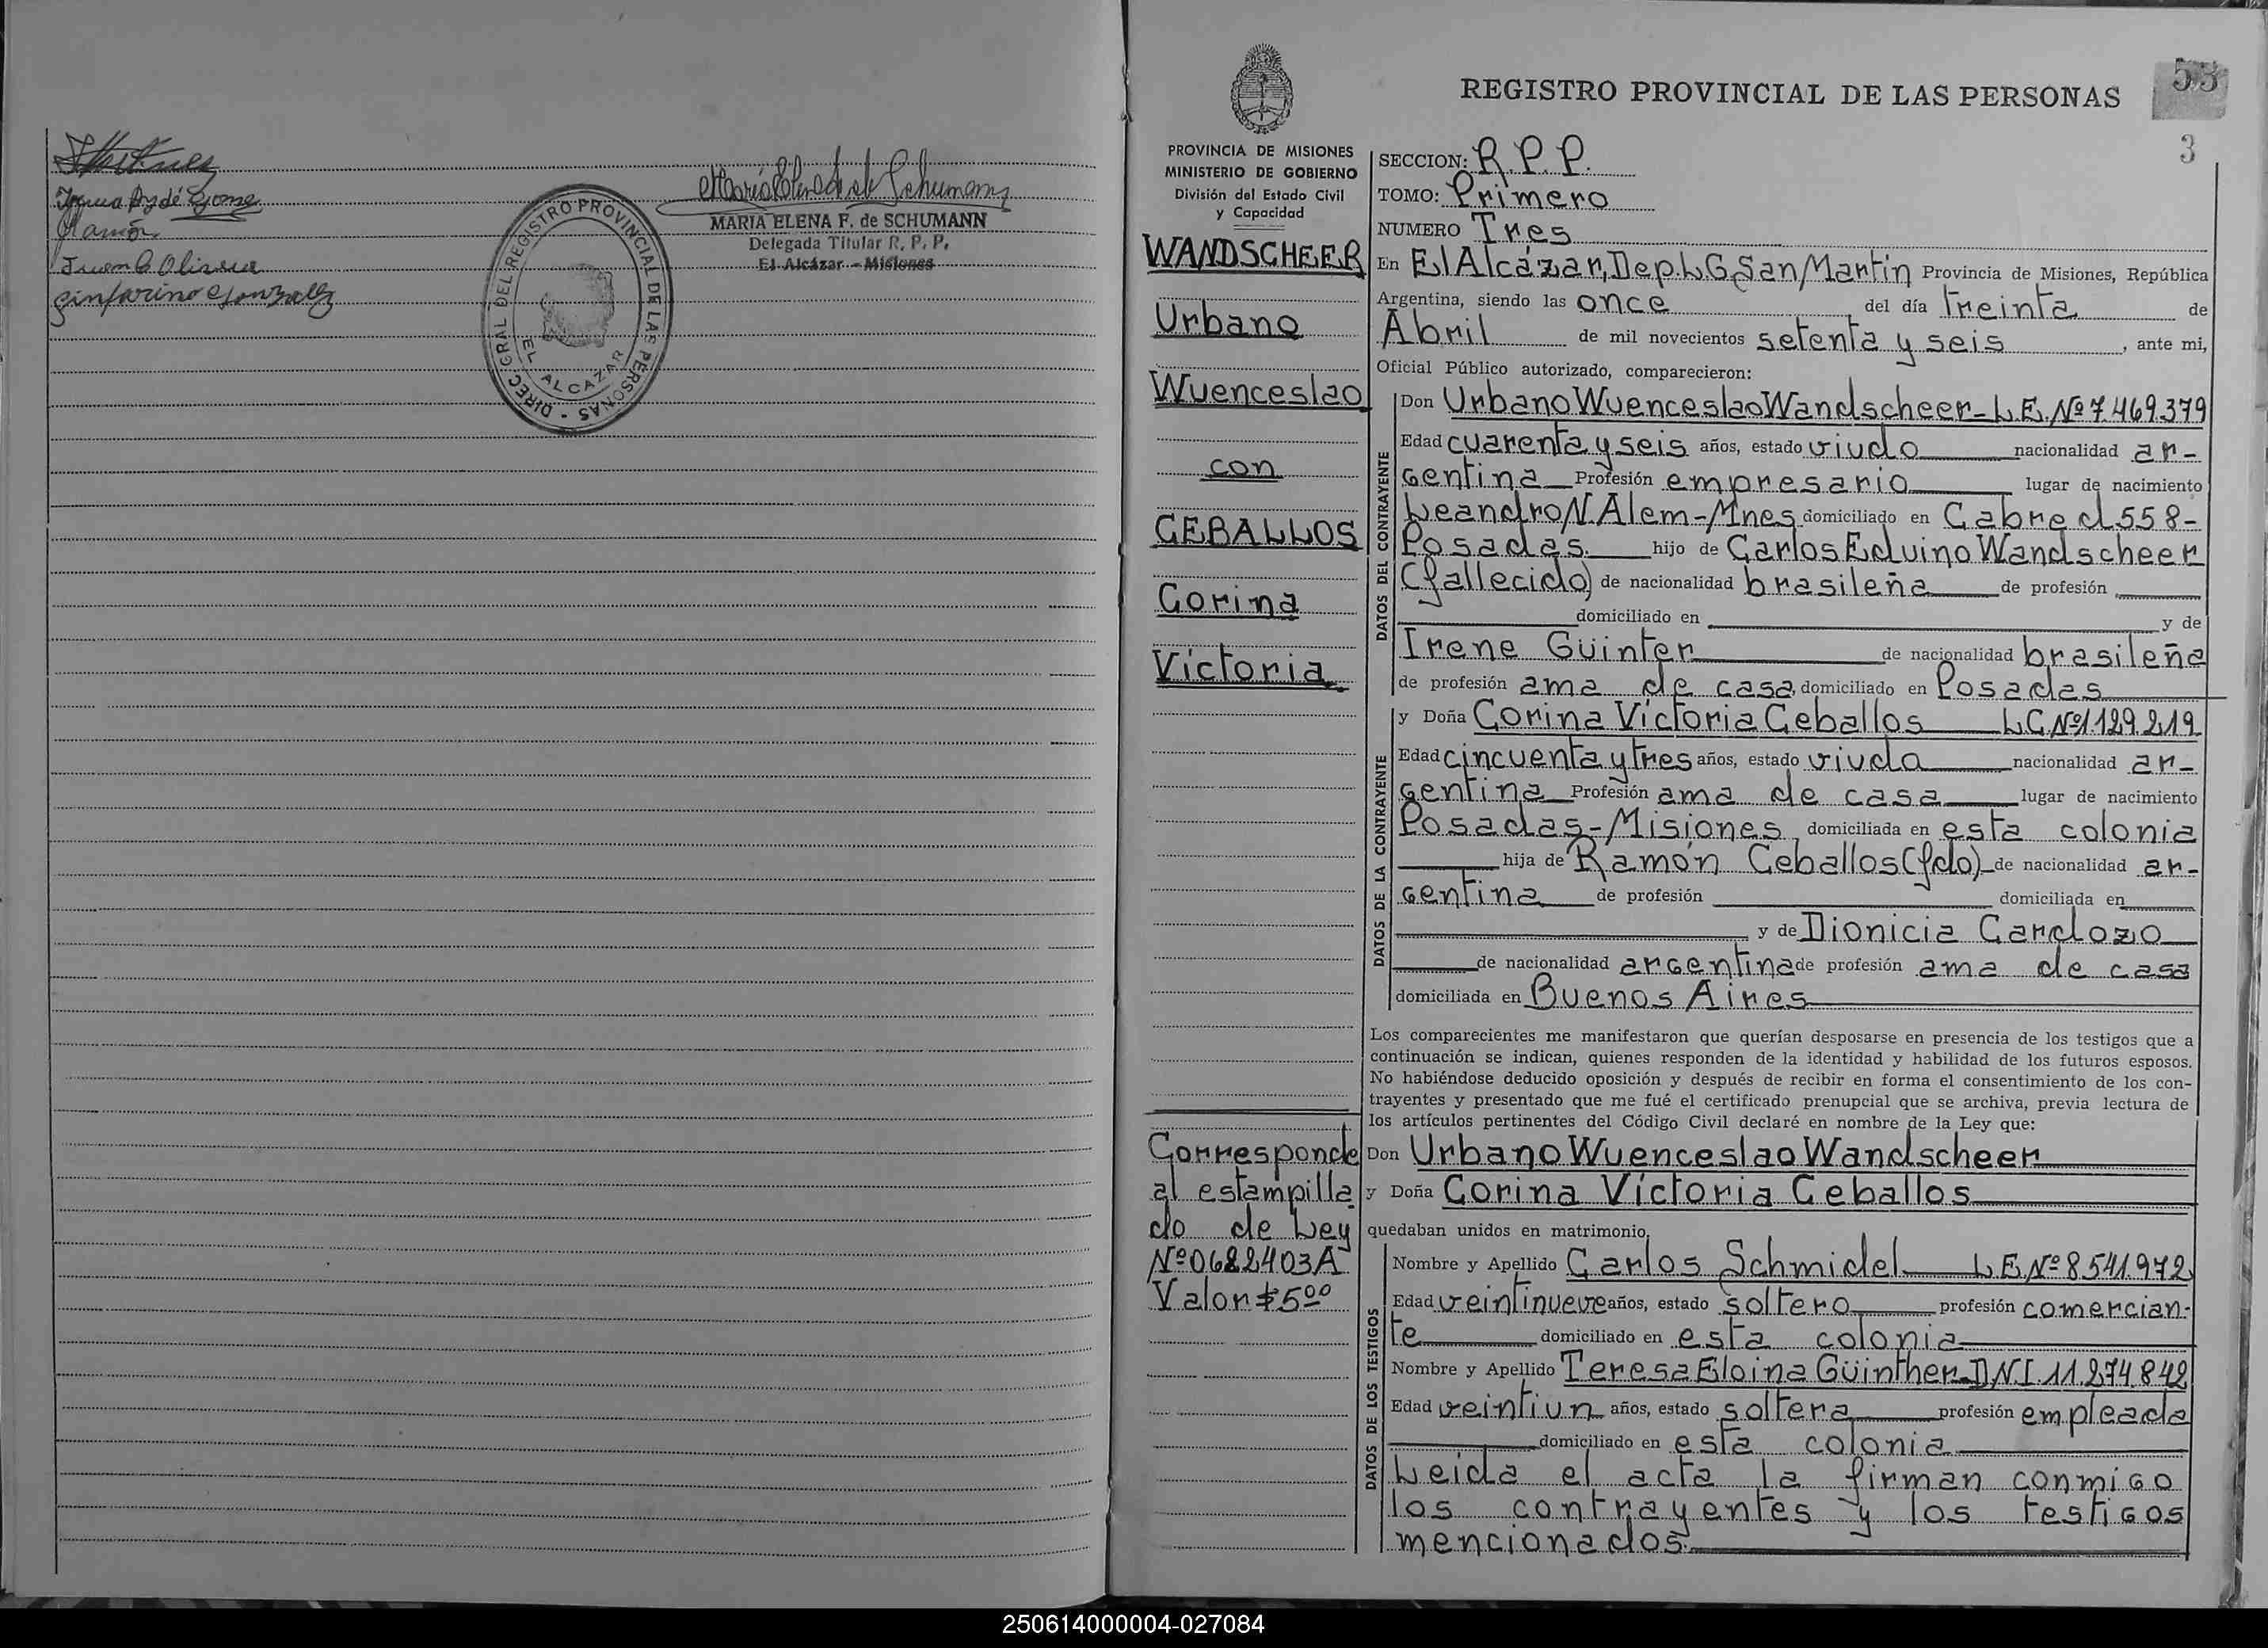 Ramón
Juan C Olivera
María Elena F de Schumann
MARIA ELENA F. de SCHUMANN
Delegada Titular R. P. P.
El Alcázar - Misiones
DIREC. GRAL DEL REGISTRO PROVINCIAL DE LAS PERSONAS -
EL ALCAZAR
53
REGISTRO PROVINCIAL DE LAS PERSONAS
3
PROVINCIA DE MISIONES
MINISTERIO DE GOBIERNO
División del Estado Civil
y Capacidad
WANDSCHEER
Urbano
Wuenceslao
con
CEBALLOS
Corina
Victoria
Corresponde
al estampilla
do de Ley
Nº0682403A
Valor $5ºº
SECCION: R.P.P.
TOMO: Primero
NUMERO Tres
En El Alcázar, Dep. L G. San Martín Provincia de Misiones, República
Argentina, siendo las once del día treinta de
Abril de mil novecientos setenta y seis, ante mi,
Oficial Público autorizado, comparecieron:
DATOS DEL CONTRAYENTE
Don Urbano Wuenceslao Wandscheer - L.E. Nº 7.469.379
Edad cuarenta y seis años, estado viudo nacionalidad ar-
gentina Profesión empresario lugar de nacimiento
Leandro N. Alem - Mnes domiciliado en Cabred 558-
Posadas. hijo de Carlos Eduino Wandscheer
(fallecido) de nacionalidad brasileña de profesión
domiciliado en y de
Irene Güinter de nacionalidad brasileña
de profesión ama de casa, domiciliado en Posadas
DATOS DE LA CONTRAYENTE
y Doña Corina Victoria Ceballos L.C. Nº 1.129.219
Edad cincuenta y tres años, estado viuda nacionalidad ar-
gentina Profesión ama de casa lugar de nacimiento
Posadas-Misiones, domiciliada en esta colonia
hija de Ramón Ceballos (fdo) de nacionalidad ar-
gentina de profesión domiciliada en
y de Dionicia Cardozo
de nacionalidad argentina de profesión ama de casa
domiciliada en Buenos Aires
Los comparecientes me manifestaron que querían desposarse en presencia de los testigos que a
continuación se indican, quienes responden de la identidad y habilidad de los futuros esposos.
No habiéndose deducido oposición y después de recibir en forma el consentimiento de los con-
trayentes y presentado que me fué el certificado prenupcial que se archiva, previa lectura de
los artículos pertinentes del Código Civil declaré en nombre de la Ley que:
Don Urbano Wuenceslao Wandscheer
y Doña Corina Victoria Ceballos
quedaban unidos en matrimonio.
DATOS DE LOS TESTIGOS
Nombre y Apellido Carlos Schmidel L.E. Nº 8.541.972
Edad veintinueve años, estado soltero profesión comercian-
te domiciliado en esta colonia
Nombre y Apellido Teresa Eloina Güinther D.N.I. 11.274.842
Edad veintiun años, estado soltera profesión empleada
domiciliado en esta colonia
Leida el acta la firman conmigo
los contrayentes y los testigos
mencionados.
250614000004-027084